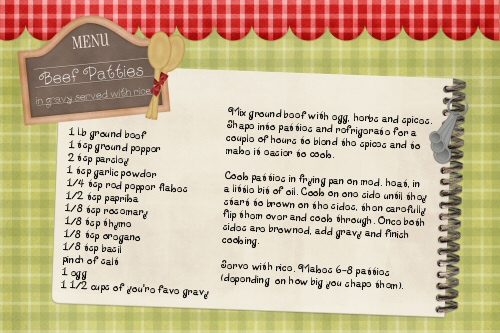 MENU
Beef Patties
in gravy served with rice
1 lb ground beef
1 tsp ground pepper
2 tsp parsley
1 tsp garlic powder
1/4 tsp red pepper flakes
1/2 tsp paprika
1/8 tsp rosemary
1/8 tsp thyme
1/8 tsp oregano
1/8 tsp basil
pinch of salt
1 egg
1 1/2 cups of you're fave gravy
Mix ground beef with egg, herbs and spices.
Shape into patties and refrigerate for a
couple of hours to blend the spices and to
make it easier to cook.
Cook patties in frying pan on med. heat, in
a little bit of oil. Cook on one side until they
start to brown on the sides, then carefully
flip them over and cook through. Once both
sides are browned, add gravy and finish
cooking.
Serve with rice. Makes 6-8 patties
(depending on how big you shape them).